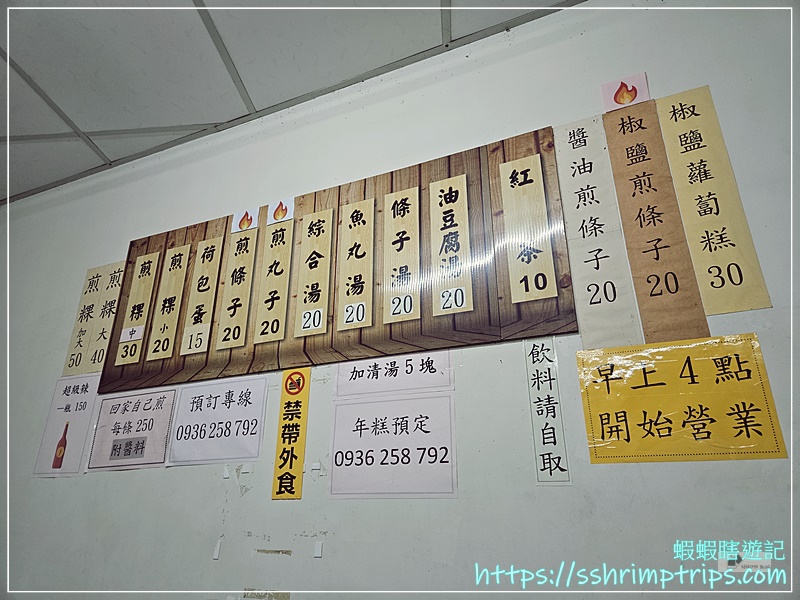 煎粿 加大 50
煎粿 大 40
煎粿 中 30
煎粿 小 20
荷包蛋 15
煎條子 20
煎丸子 20
綜合湯 20
魚丸湯 20
條子湯 20
油豆腐湯 20
紅茶 10
醬油煎條子 20
椒鹽煎條子 20
椒鹽蘿蔔糕 30
超級辣
一瓶 150
回家自己煎
每條 250
附醬料
預訂專線
0936 258 792
禁帶外食
加清湯 5 塊
年糕預定
0936 258 792
飲料請自取
早上 4 點
開始營業
蝦蝦瞎遊記
https://sshrimptrips.com